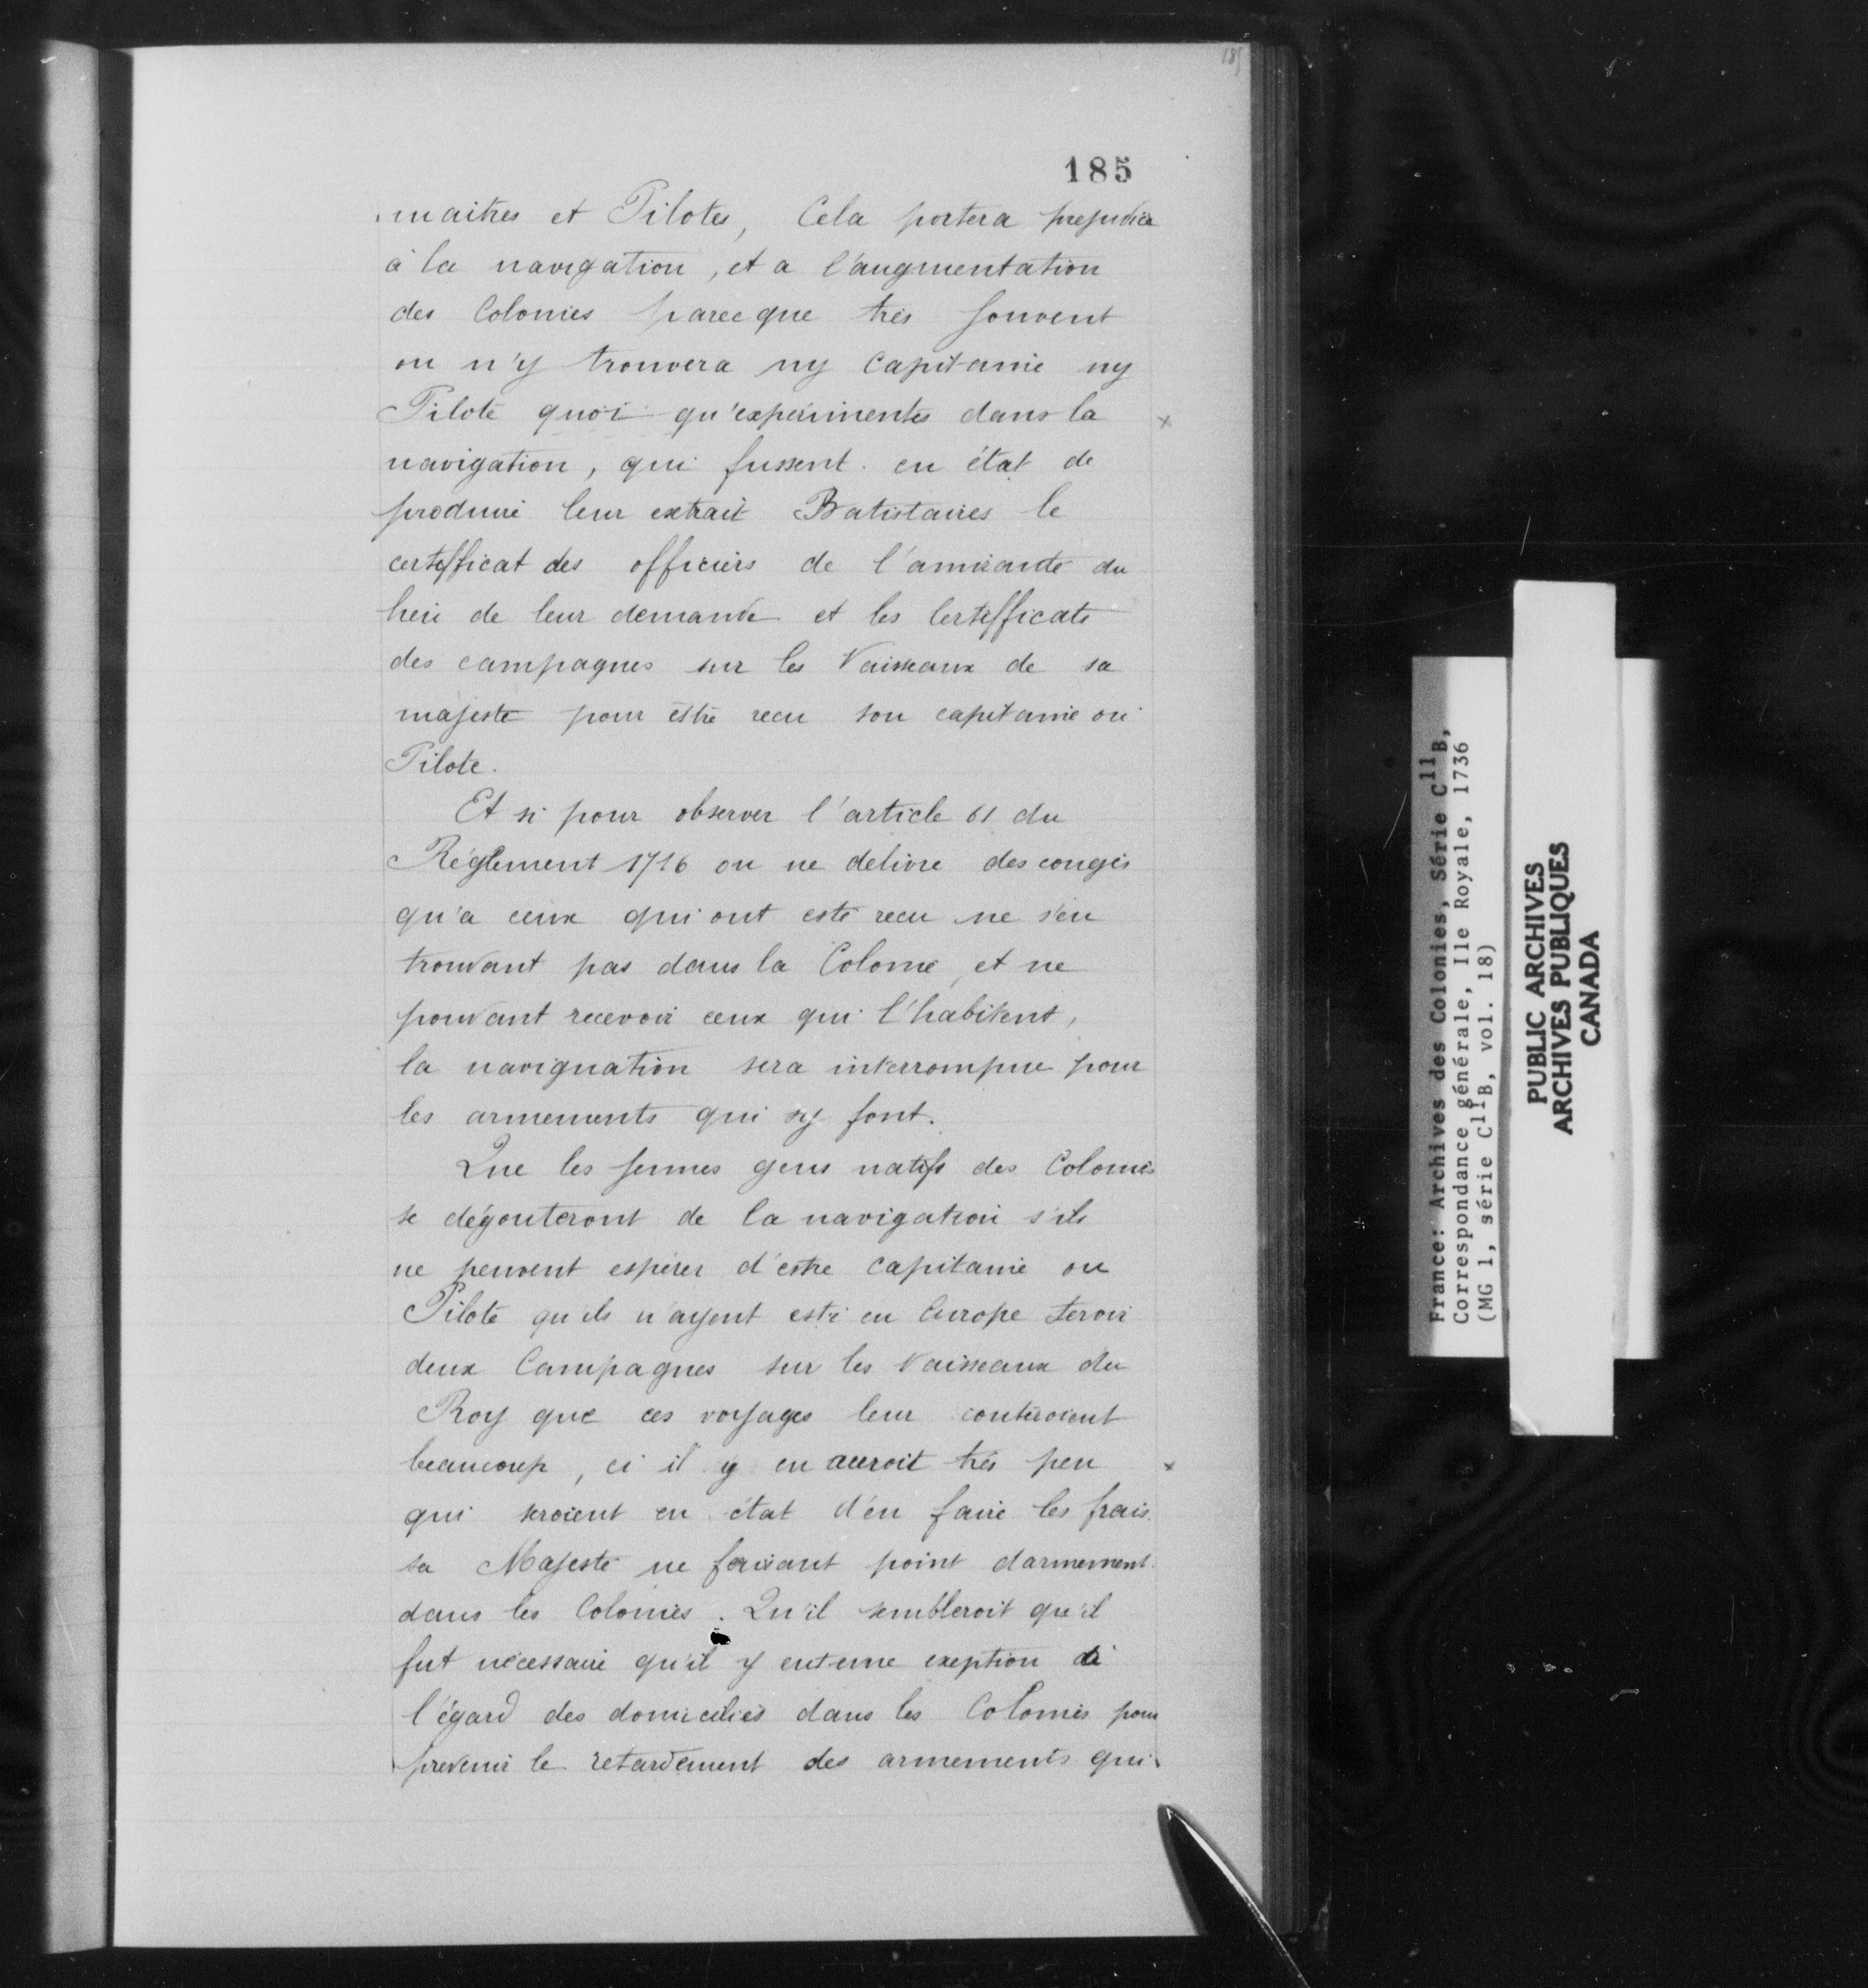 185
185
maitres et Pilotes, Cela portera prejudice
à la navigation, et a l'augmentation
des Colonies parecque très souvent
on n'y trouvera ny Capitaine ny
Pilote quoi qu'experimentés dans la
navigation, qui fussent en état de
produire leur extrait Batistaires le
certifficat des officiers de l'amirauté du
lieu de leur demande et les Certifficats
des campagnes sur les Vaisseaux de sa
majesté pour estre recu son capitaine ou
Pilote.
Et si pour observer l'article 61 du
Réglement 1716 on ne delivre des congés
qu'a ceux qui ont esté recu ne s'en
trouvant pas dans la Colonie, et ne
pouvant recevoir ceux qui l'habitent,
la navignation sera interrompue pour
les armements qui sy font.
Que les jeunes gens natifs des Colonies
se dégouteront de la navigation s'ils
ne peuvent espérer d'estre Capitaine ou
Pilote qu'ils n'ayent esté en Europe servir
deux Campagnes sur les Vaisseaux du
Roy que ces voyages leur couteroient
beaucoup, ci il y en auroit très peu
qui seroient en état d'en faire les frais
sa Majesté ne faisant point darmement
dans les Colonies. Qu'il sembleroit qu'il
fut nécessaire qu'il y eut une exeption à
l'égard des domiciliés dans les Colonies pour
prevenir le retardement des armements qui
France: Archives des Colonies, Série C11B,
Correspondance générale, Ile Royale, 1736
(MG 1, série C11B, vol. 18)
PUBLIC ARCHIVES
ARCHIVES PUBLIQUES
CANADA